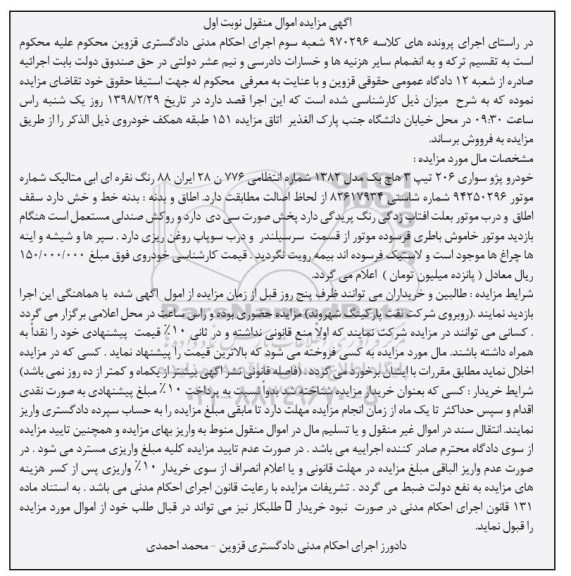 اگهی مزایده اموال منقول نوبت اول
در راستای اجرای پرونده های کلاسه ۹۷۰۲۹۶ شعبه سوم اجرای احکام مدنی دادگستری قزوین محکوم علیه محکوم
است به تقسیم ترکه و به انضمام سایر هزینه ها و خسارات دادرسی و نیم عشر دولتی در حق صندوق دولت بابت اجرائیه
صادره از شعبه ۱۲ دادگاه عمومی حقوقی قزوین و با عنایت به معرفی محکوم له جهت استیفا حقوق خود تقاضای مزایده
نموده که به شرح میزان ذیل کارشناسی شده است که این اجرا قصد دارد در تاریخ ۱۳۹۸/۲/۲۹ روز یک شنبه راس
ساعت ۰۹:۳۰ در محل خیابان دانشگاه جنب پارک الغذیر اتاق مزایده ۱۵۱ طبقه همکف خودروی ذیل الذکر را از طریق
مزایده به فرووش برساند.
مشخصات مال مورد مزایده :
خودرو پژو سواری ۲۰۶ تیپ ۳ هاچ بک مدل ۱۳۸۳ شماره انتظامی ۷۷۶ ن ۲۸ ایران ۸۸ رنگ نقره ای ابی متالیک شماره
موتور ۹۴۲۵۰۲۹۶ شماره شاسی ۸۳۶۱۷۹۳۴ از لحاظ اصالت مطابقت دارد. اطاق و بدنه : بدنه خط و خش دارد سقف
اطاق و درب موتور بعلت افتاب زدگی رنگ پریدگی دارد پخش صورت سی دی دارد و روکش صندلی مستعمل است هنگام
بازدید موتور خاموش باطری فرسوده موتور از قسمت سرسیلندر و درب سوپاپ روغن ریزی دارد . سپر ها و شیشه و اینه
ها چراغ ها موجود است و لاستیک فرسوده اند بیمه رویت نگردید . قیمت کارشناسی خودروی فوق مبلغ ۱۵۰/۰۰۰/۰۰۰
ریال معادل ( پانزده میلیون تومان ) اعلام می گردد.
شرایط مزایده : طالبین و خریداران می توانند ظرف پنج روز قبل از زمان مزایده از امول اگهی شده با هماهنگی این اجرا
بازدید نمایند .(روبروی شرکت نفت پارکینگ شهروند) مزایده حضوری بوده و راس ساعت در محل اعلامی برگزار می گردد
. کسانی می توانند در مزایده شرکت نمایند که اولاً منع قانونی نداشته و در ثانی ۱۰٪ قیمت پیشنهادی خود را نقداً به
همراه داشته باشند. مال مورد مزایده به کسی فروخته می شود که بالاترین قیمت را پیشنهاد نماید . کسی که در مزایده
اخلال نماید مطابق مقررات با ایشان برخورد می گردد . (فاصله قانونی نشر اگهی بیشتر از یکماه و کمتر از ده روز نمی باشد)
شرایط خریدار : کسی که بعنوان خریدار مزایده شناخته شد بدواً نسبت به پرداخت ۱۰٪ مبلغ پیشنهادی به صورت نقدی
اقدام و سپس حداکثر تا یک ماه از زمان انجام مزایده مهلت دارد تا مابقی مبلغ مزایده را به حساب سپرده دادگستری واریز
نمایند. انتقال سند در اموال غیر منقول و یا تسلیم مال در اموال منقول منوط به واریز بهای مزایده و همچنین تایید مزایده
از سوی دادگاه محترم صادر کننده اجراییه می باشد . در صورت عدم تایید مزایده کلیه مبلغ واریزی مسترد می شود . در
صورت عدم واریز الباقی مبلغ مزایده در مهلت قانونی و یا اعلام انصراف از سوی خریدار ۱۰٪ واریزی پس از کسر هزینه
های مزایده به نفع دولت ضبط می گردد . تشریفات مزایده با رعایت قانون اجرای احکام مدنی می باشد . به استناد ماده
۱۳۱ قانون اجرای احکام مدنی در صورت نبود خریدار ▯ طلبکار نیز می تواند در قبال طلب خود از اموال مورد مزایده
را قبول نماید.
دادورز اجرای احکام مدنی دادگستری قزوین - محمد احمدی